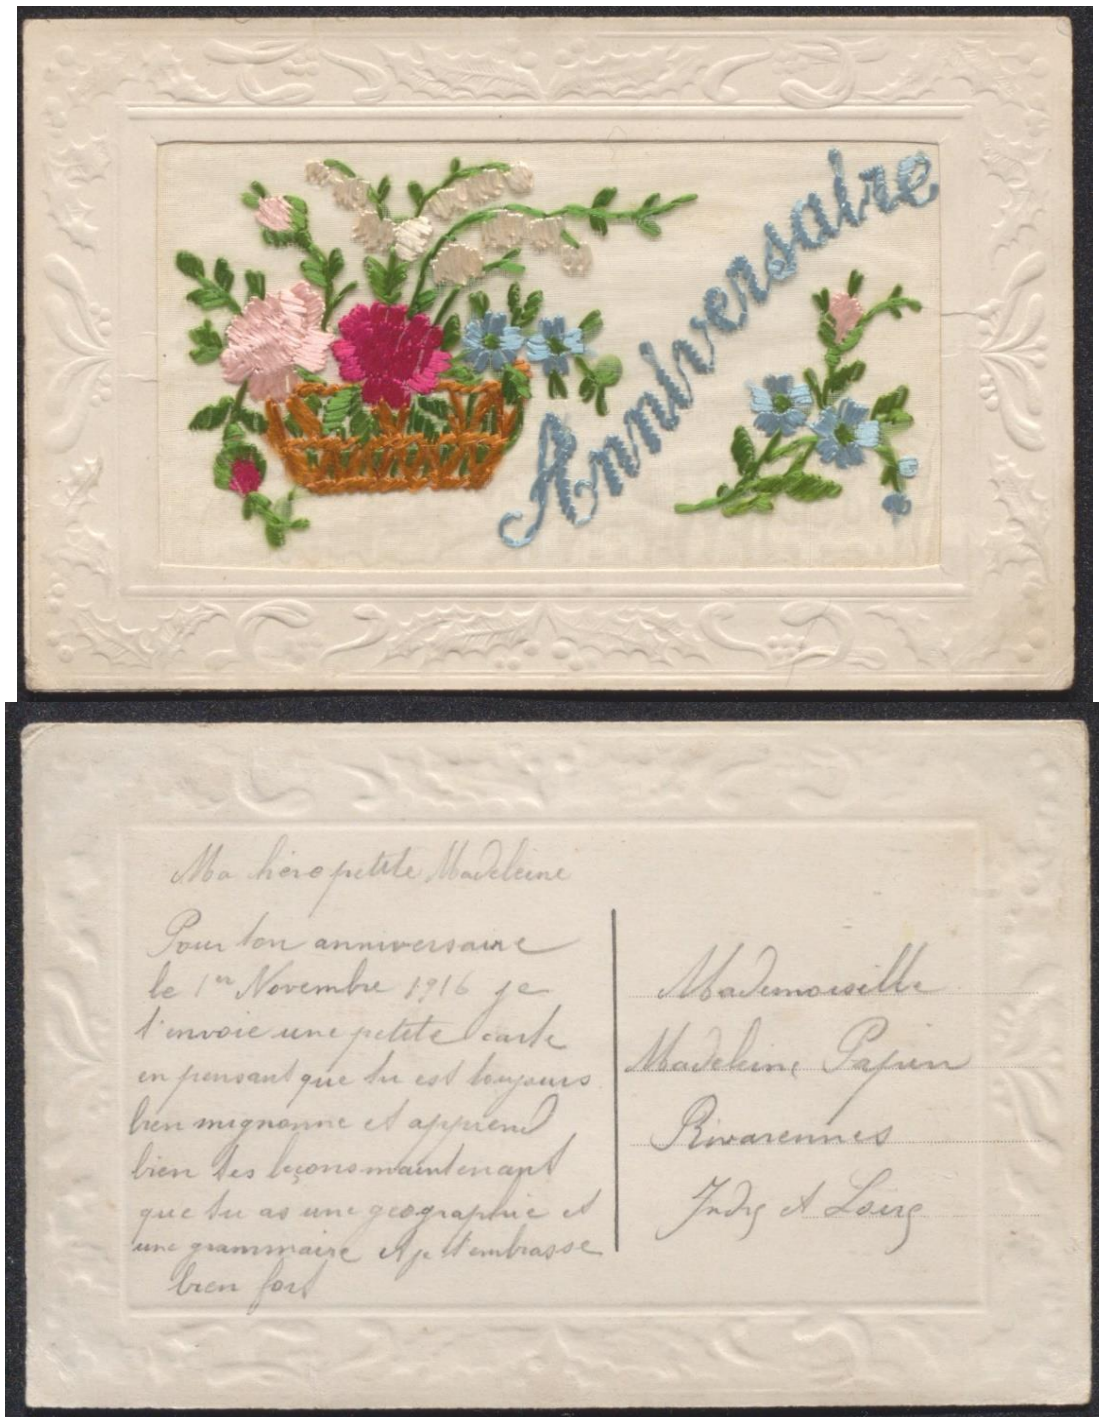 Anniversaire
Ma hère petite Madeleine
Pour ton anniversaire
le 1er Novembre 1916 je
t'envoie une petite carte
en pensant que tu est toujours
bien mignonne et apprend
bien tes leçons maintenant
que tu as une geographie et
une grammaire et je t'embrasse
bien fort
Mademoiselle
Madeleine Papin
Rivarennes
Indre et Loire